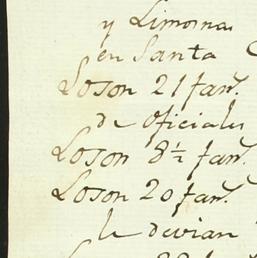 y Limosnas
en Santa
Loson 21 fan.
de oficiales
Loson 8½ fan.
Loson 20 fan.
le devian